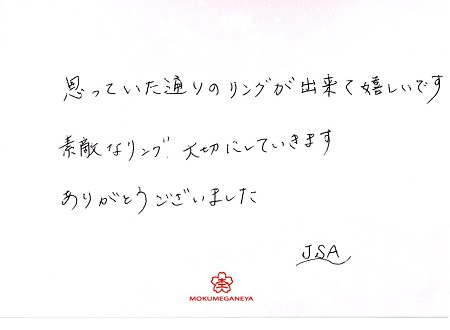 思っていた通りのリングが出来て嬉しいです
素敵なリング！大切にしていきます
ありがとうございました
J.S.A
MOKUMEGANEYA